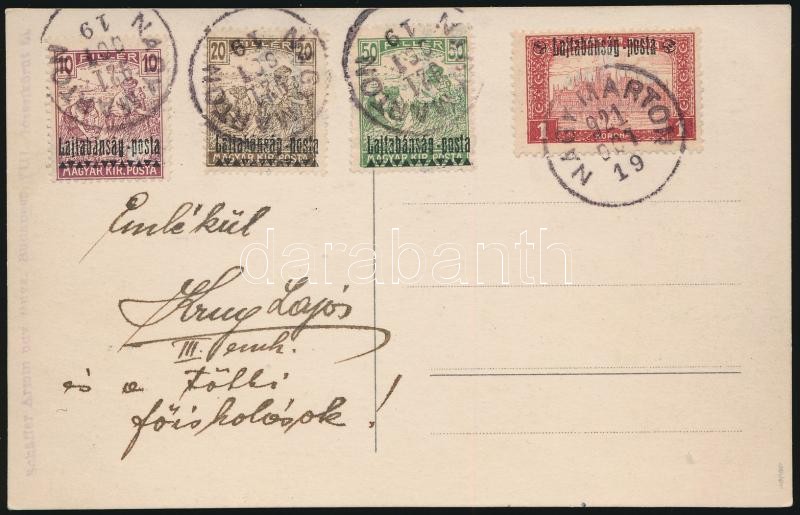 10 FILLÉR 10
Lajtabánság - posta
MAGYAR KIR. POSTA
20 FILLÉR 20
Lajtabánság - posta
MAGYAR KIR. POSTA
50 FILLÉR 50
Lajtabánság - posta
MAGYAR KIR. POSTA
Lajtabánság - posta
1 KORONA 1
NAGYMARTON
921 OKT 19
Emlékül
Krug Lajos
III. emh.
és a többi
főiskolások!
darabanth